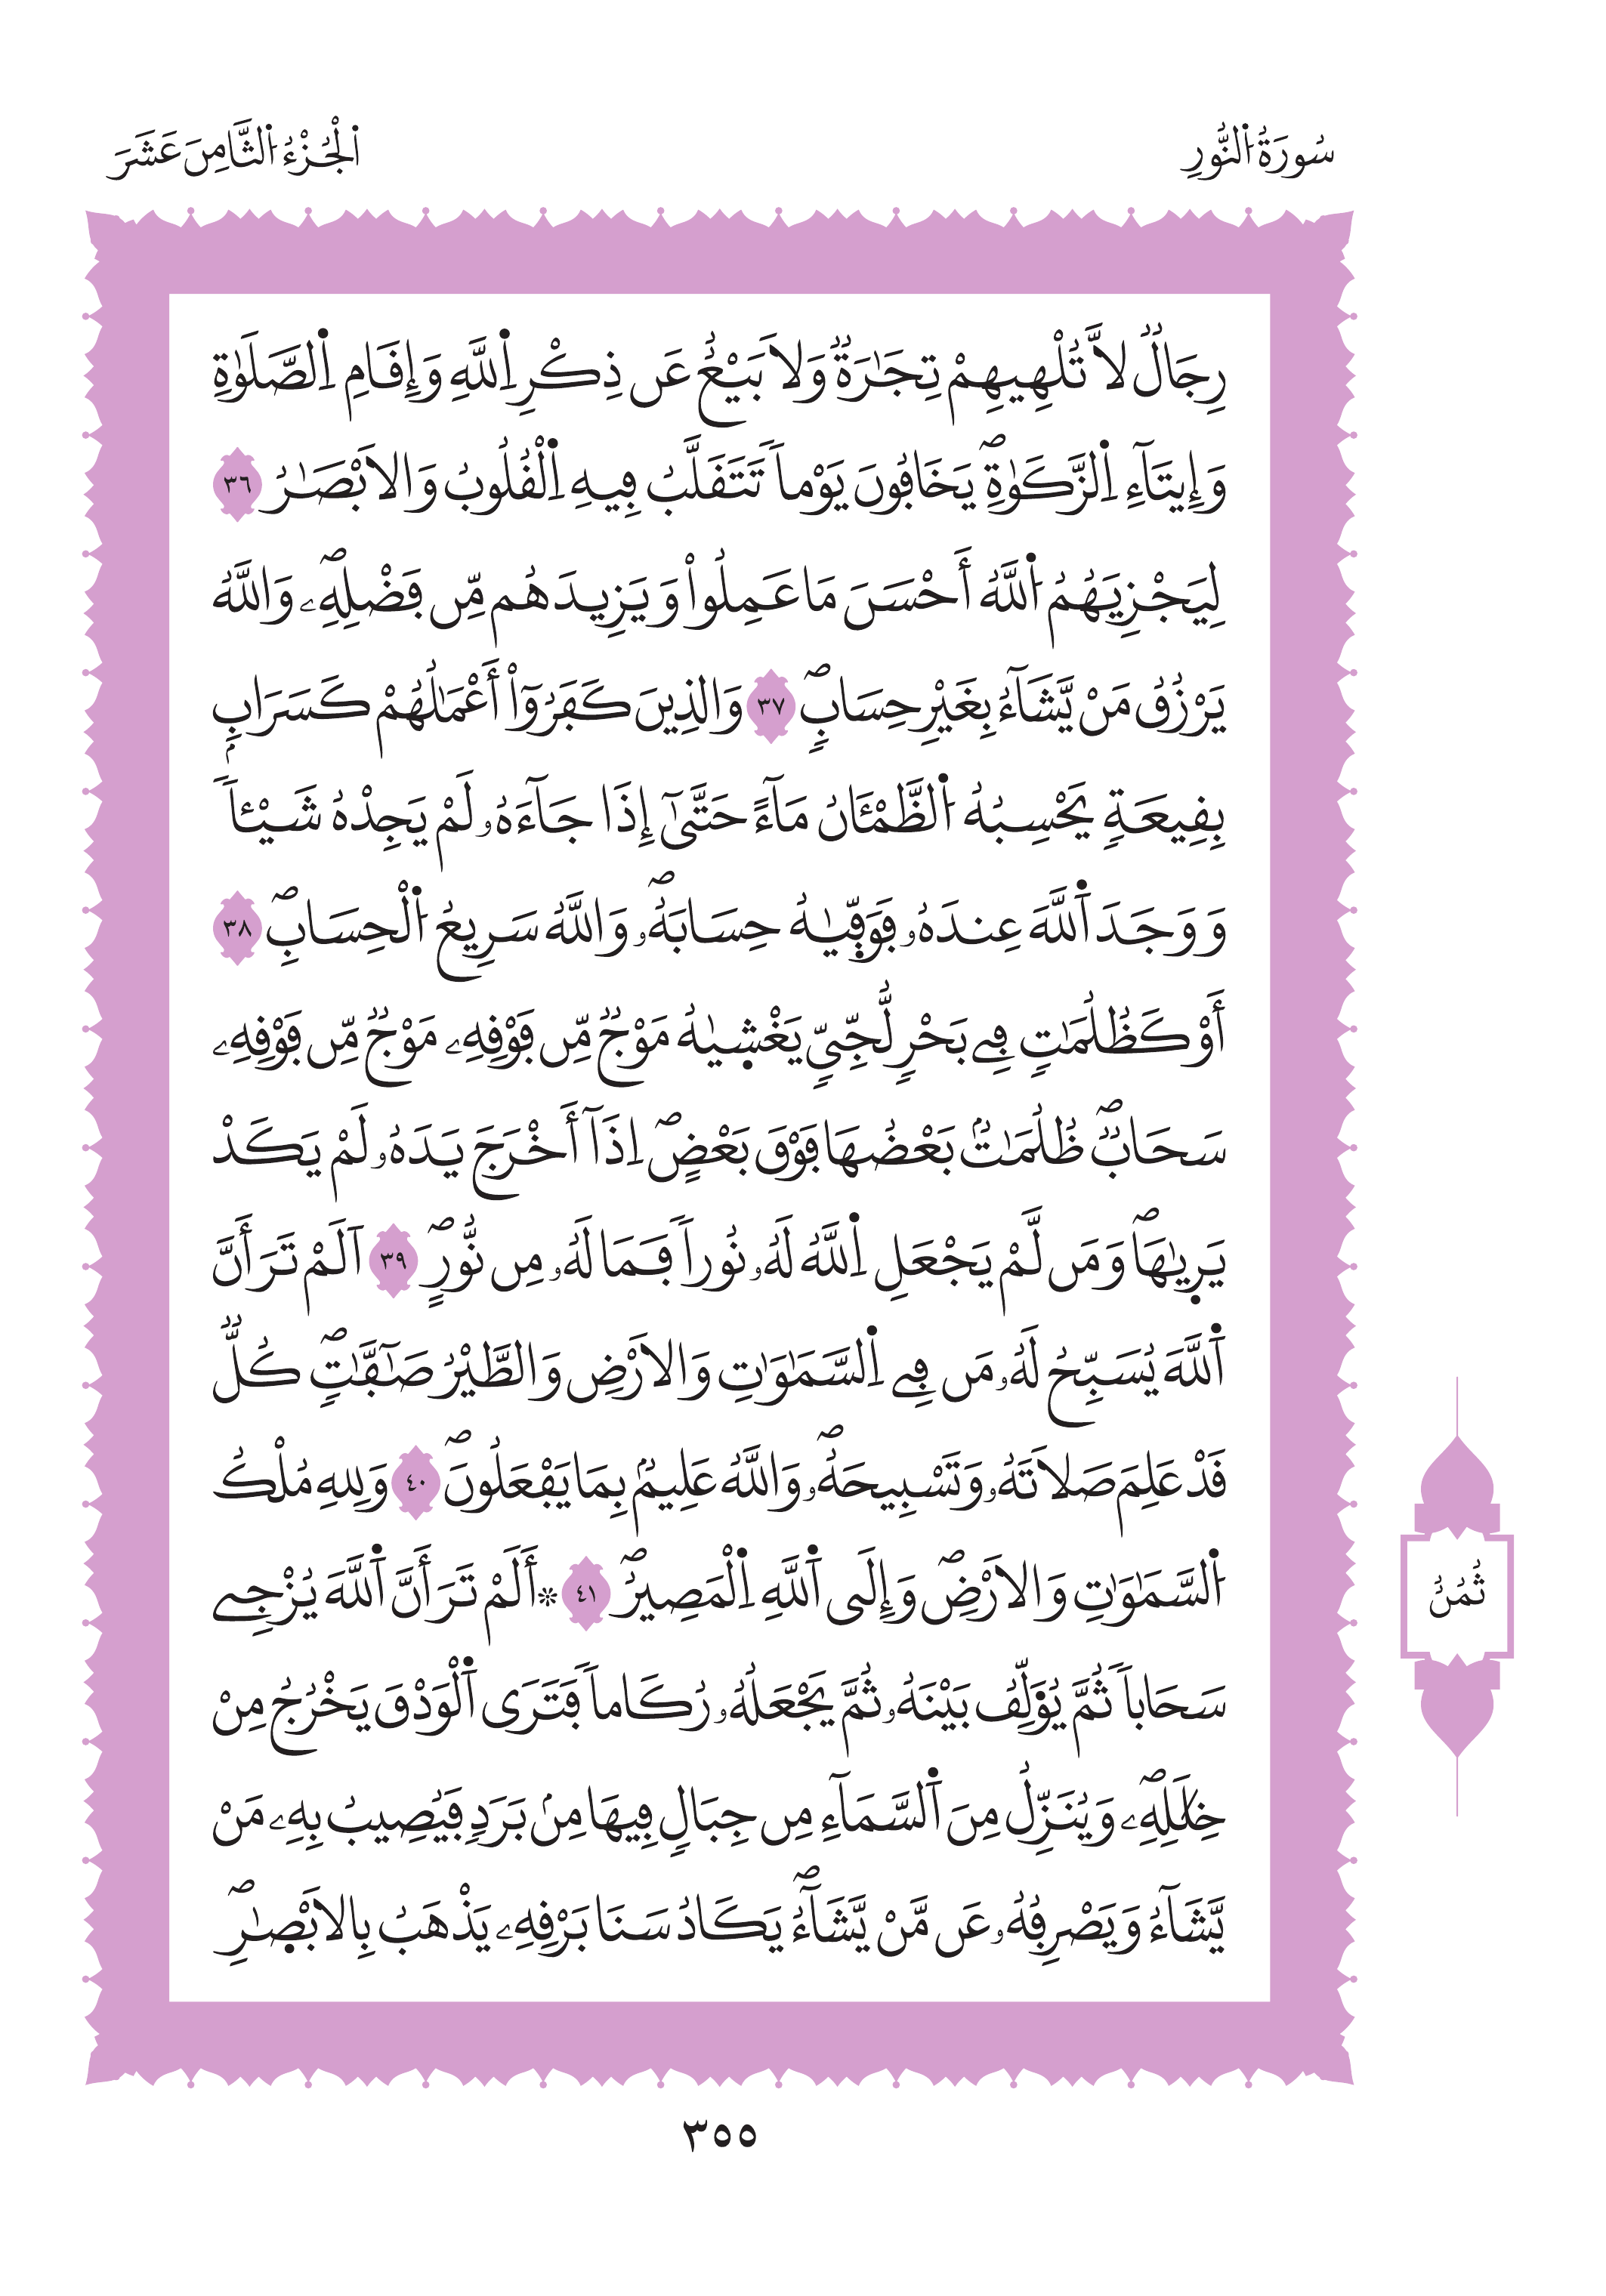 سُورَةُ اُ۬لنُّورِ
اَ۬لْجُزْءُ اُ۬لثَّامِنَ عَشَرَ
رِجَالٞ لَّا تُلْهِيهِمْ تِجَٰرَةٞ وَلَا بَيْعٌ عَن ذِكْرِ اِ۬للَّهِ وَإِقَامِ اِ۬لصَّلَوٰةِ
وَإِيتَآءِ اِ۬لزَّكَوٰةِۖ يَخَافُونَ يَوْماٗ تَتَقَلَّبُ فِيهِ اِ۬لْقُلُوبُ وَالَابْصَٰرُ ٣٦
لِيَجْزِيَهُمُ اُ۬للَّهُ أَحْسَنَ مَا عَمِلُواْ وَيَزِيدَهُم مِّن فَضْلِهِۦۖ وَاللَّهُ
يَرْزُقُ مَنْ يَّشَآءُ بِغَيْرِ حِسَابٖۖ ٣٧ وَالذِينَ كَفَرُوٓاْ أَعْمَٰلُهُمْ كَسَرَابِۢ
بِقِيعَةٖ يَحْسِبُهُ اُ۬لظَّمْـَٔانُ مَآءً حَتَّىٰٓ إِذَا جَآءَهُۥ لَمْ يَجِدْهُ شَيْـٔاٗ
وَوَجَدَ اَ۬للَّهَ عِندَهُۥ فَوَفّ۪يٰهُ حِسَابَهُۥۖ وَاللَّهُ سَرِيعُ اُ۬لْحِسَابِۖ ٣٨
أَوْ كَظُلُمَٰتٖ فِے بَحْرٖ لُّجِّيّٖ يَغْش۪يٰهُ مَوْجٞ مِّن فَوْقِهِۦ مَوْجٞ مِّن فَوْقِهِۦ
سَحَابٞۖ ظُلُمَٰتُۢ بَعْضُهَا فَوْقَ بَعْضٍۖ اِذَآ أَخْرَجَ يَدَهُۥ لَمْ يَكَدْ
يَر۪يٰهَاۖ وَمَن لَّمْ يَجْعَلِ اِ۬للَّهُ لَهُۥ نُوراٗ فَمَا لَهُۥ مِن نُّورٍۖ ٣٩ اَلَمْ تَرَ أَنَّ
اَ۬للَّهَ يُسَبِّحُ لَهُۥ مَن فِے اِ۬لسَّمَٰوَٰتِ وَالَارْضِ وَالطَّيْرُ صَٰٓفَّٰتٖۖ كُلّٞ
قَدْ عَلِمَ صَلَاتَهُۥ وَتَسْبِيحَهُۥۖ وَاللَّهُ عَلِيمُۢ بِمَا يَفْعَلُونَۖ ٤٠ وَلِلهِ مُلْكُ
اُ۬لسَّمَٰوَٰتِ وَالَارْضِۖ وَإِلَى اَ۬للَّهِ اِ۬لْمَصِيرُۖ ٤١ ۞أَلَمْ تَرَ أَنَّ اَ۬للَّهَ يُزْجِے
سَحَاباٗ ثُمَّ يُؤَلِّفُ بَيْنَهُۥ ثُمَّ يَجْعَلُهُۥ رُكَاماٗ فَتَرَى اَ۬لْوَدْقَ يَخْرُجُ مِنْ
خِلَٰلِهِۦۖ وَيُنَزِّلُ مِنَ اَ۬لسَّمَآءِ مِن جِبَالٖ فِيهَا مِنۢ بَرَدٖ فَيُصِيبُ بِهِۦ مَنْ
يَّشَآءُ وَيَصْرِفُهُۥ عَن مَّنْ يَّشَآءُۖ يَكَادُ سَنَا بَرْقِهِۦ يَذْهَبُ بِالَابْصٰ۪رِۖ
ثُمُنُ
٣٥٥